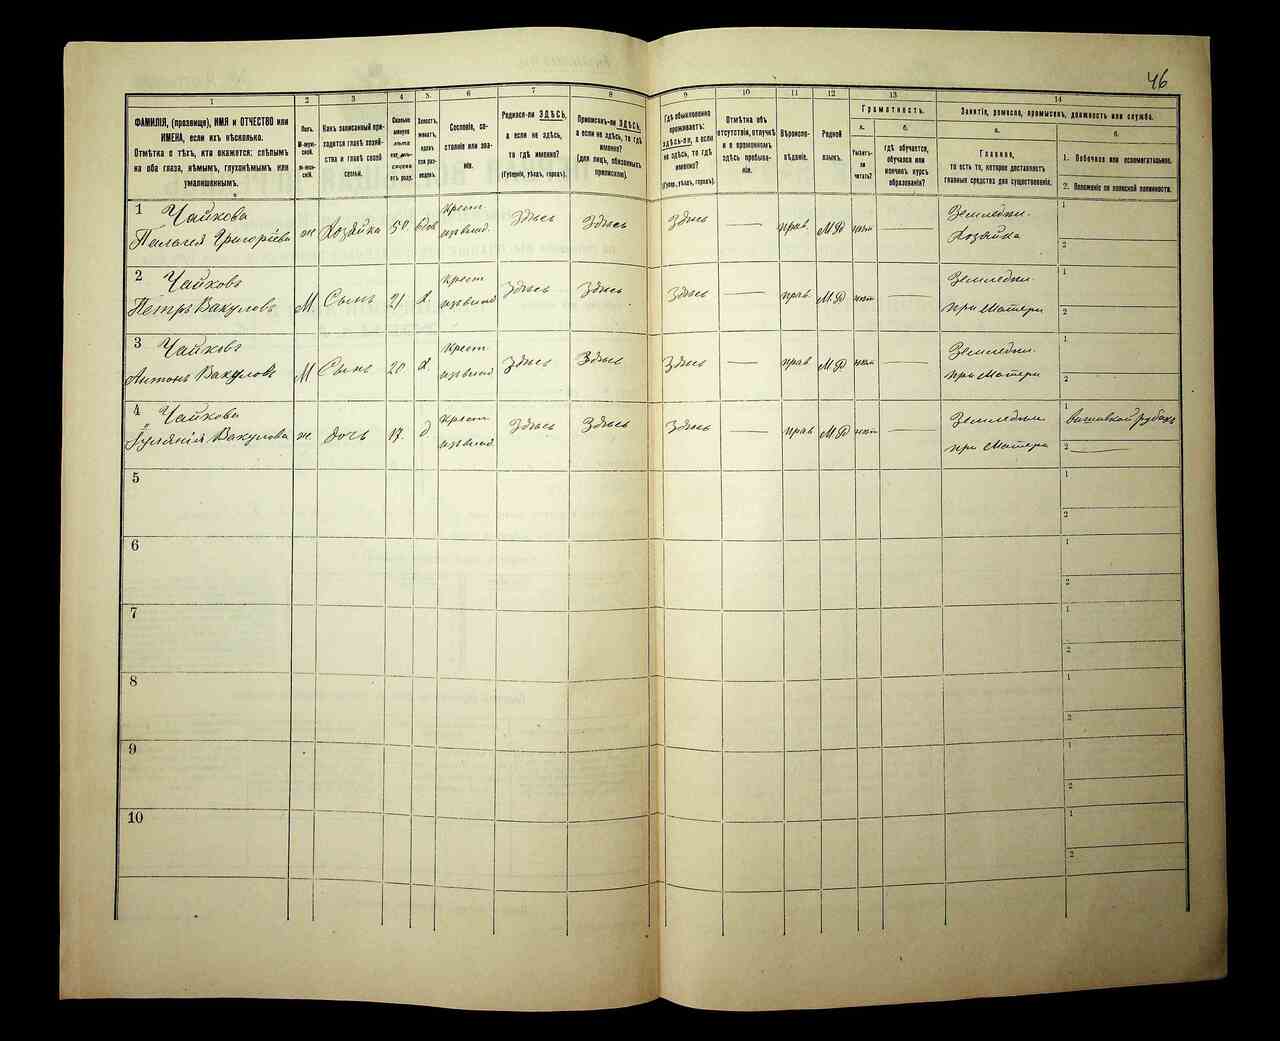 46
1
2
3
4
5.
6
7
8
9
10
11
12
13
14
ФАМИЛІЯ, (прозвище), ИМЯ и ОТЧЕСТВО или
ИМЕНА, если ихъ нѣсколько.
Отмѣтка о тѣхъ, кто окажется: слѣпымъ
на оба глаза, нѣмымъ, глухонѣмымъ или
умалишеннымъ.
Полъ.
М-муж-
ской.
Какъ записанный при-
ходится главѣ хозяй-
ства и главѣ своей
семьи.
Сколько
минуло
лѣтъ
отъ роду.
Холостъ,
женатъ,
вдовъ
или раз-
веденъ.
Сословіе, со-
стояніе или зва-
ніе.
Родился-ли ЗДѢСЬ,
а если не здѣсь,
то гдѣ именно?
(Губернія, уѣздъ, городъ).
Приписанъ-ли ЗДѢСЬ,
а если не здѣсь, то гдѣ
именно?
(для лицъ, обязанныхъ
припискою).
Гдѣ обыкновенно
проживаетъ:
ЗДѢСЬ-ли, а если
не здѣсь, то гдѣ
именно?
(Губер., уѣздъ, городъ).
Отмѣтка объ
отсутствіи, отлучкѣ
и о временномъ
здѣсь пребыва-
ніи.
Вѣроиспо-
вѣданіе.
Родной
языкъ.
Грамотность.
а.
б.
Умѣетъ-
ли
читать?
гдѣ обучается,
обучался или
кончилъ курсъ
образованія?
Занятіе, ремесло, промыселъ, должность или служба.
а.
б.
Главное,
то есть то, которое доставляетъ
главныя средства для существованія.
1. Побочное или вспомогательное.
2. Положеніе по воинской повинности.
1 Чайкова
Палагея Григорьева ж Хозяйка 50 вдов Крест. Здѣсь Здѣсь Здѣсь — прав. МР нѣт — Земледѣл. Хозяйка
1
2
2 Чайковъ
Петръ Вакуловъ М. Сынъ 21 х. Крест. Здѣсь Здѣсь Здѣсь — прав МР нѣт — Земледѣл. при Матери
1
2
3 Чайковъ
Антонъ Вакуловъ М Сынъ 20 х. Крест. Здѣсь Здѣсь Здѣсь — прав МР нѣт — Земледѣл. при Матери
1
2
4 Чайкова
Вакулова ж. дочь 17. д Крест. Здѣсь Здѣсь Здѣсь — прав МР нѣт — Земледѣл. при Матери
1
2 —
5
1
2
6
1
2
7
1
2
8
1
2
9
1
2
10
1
2